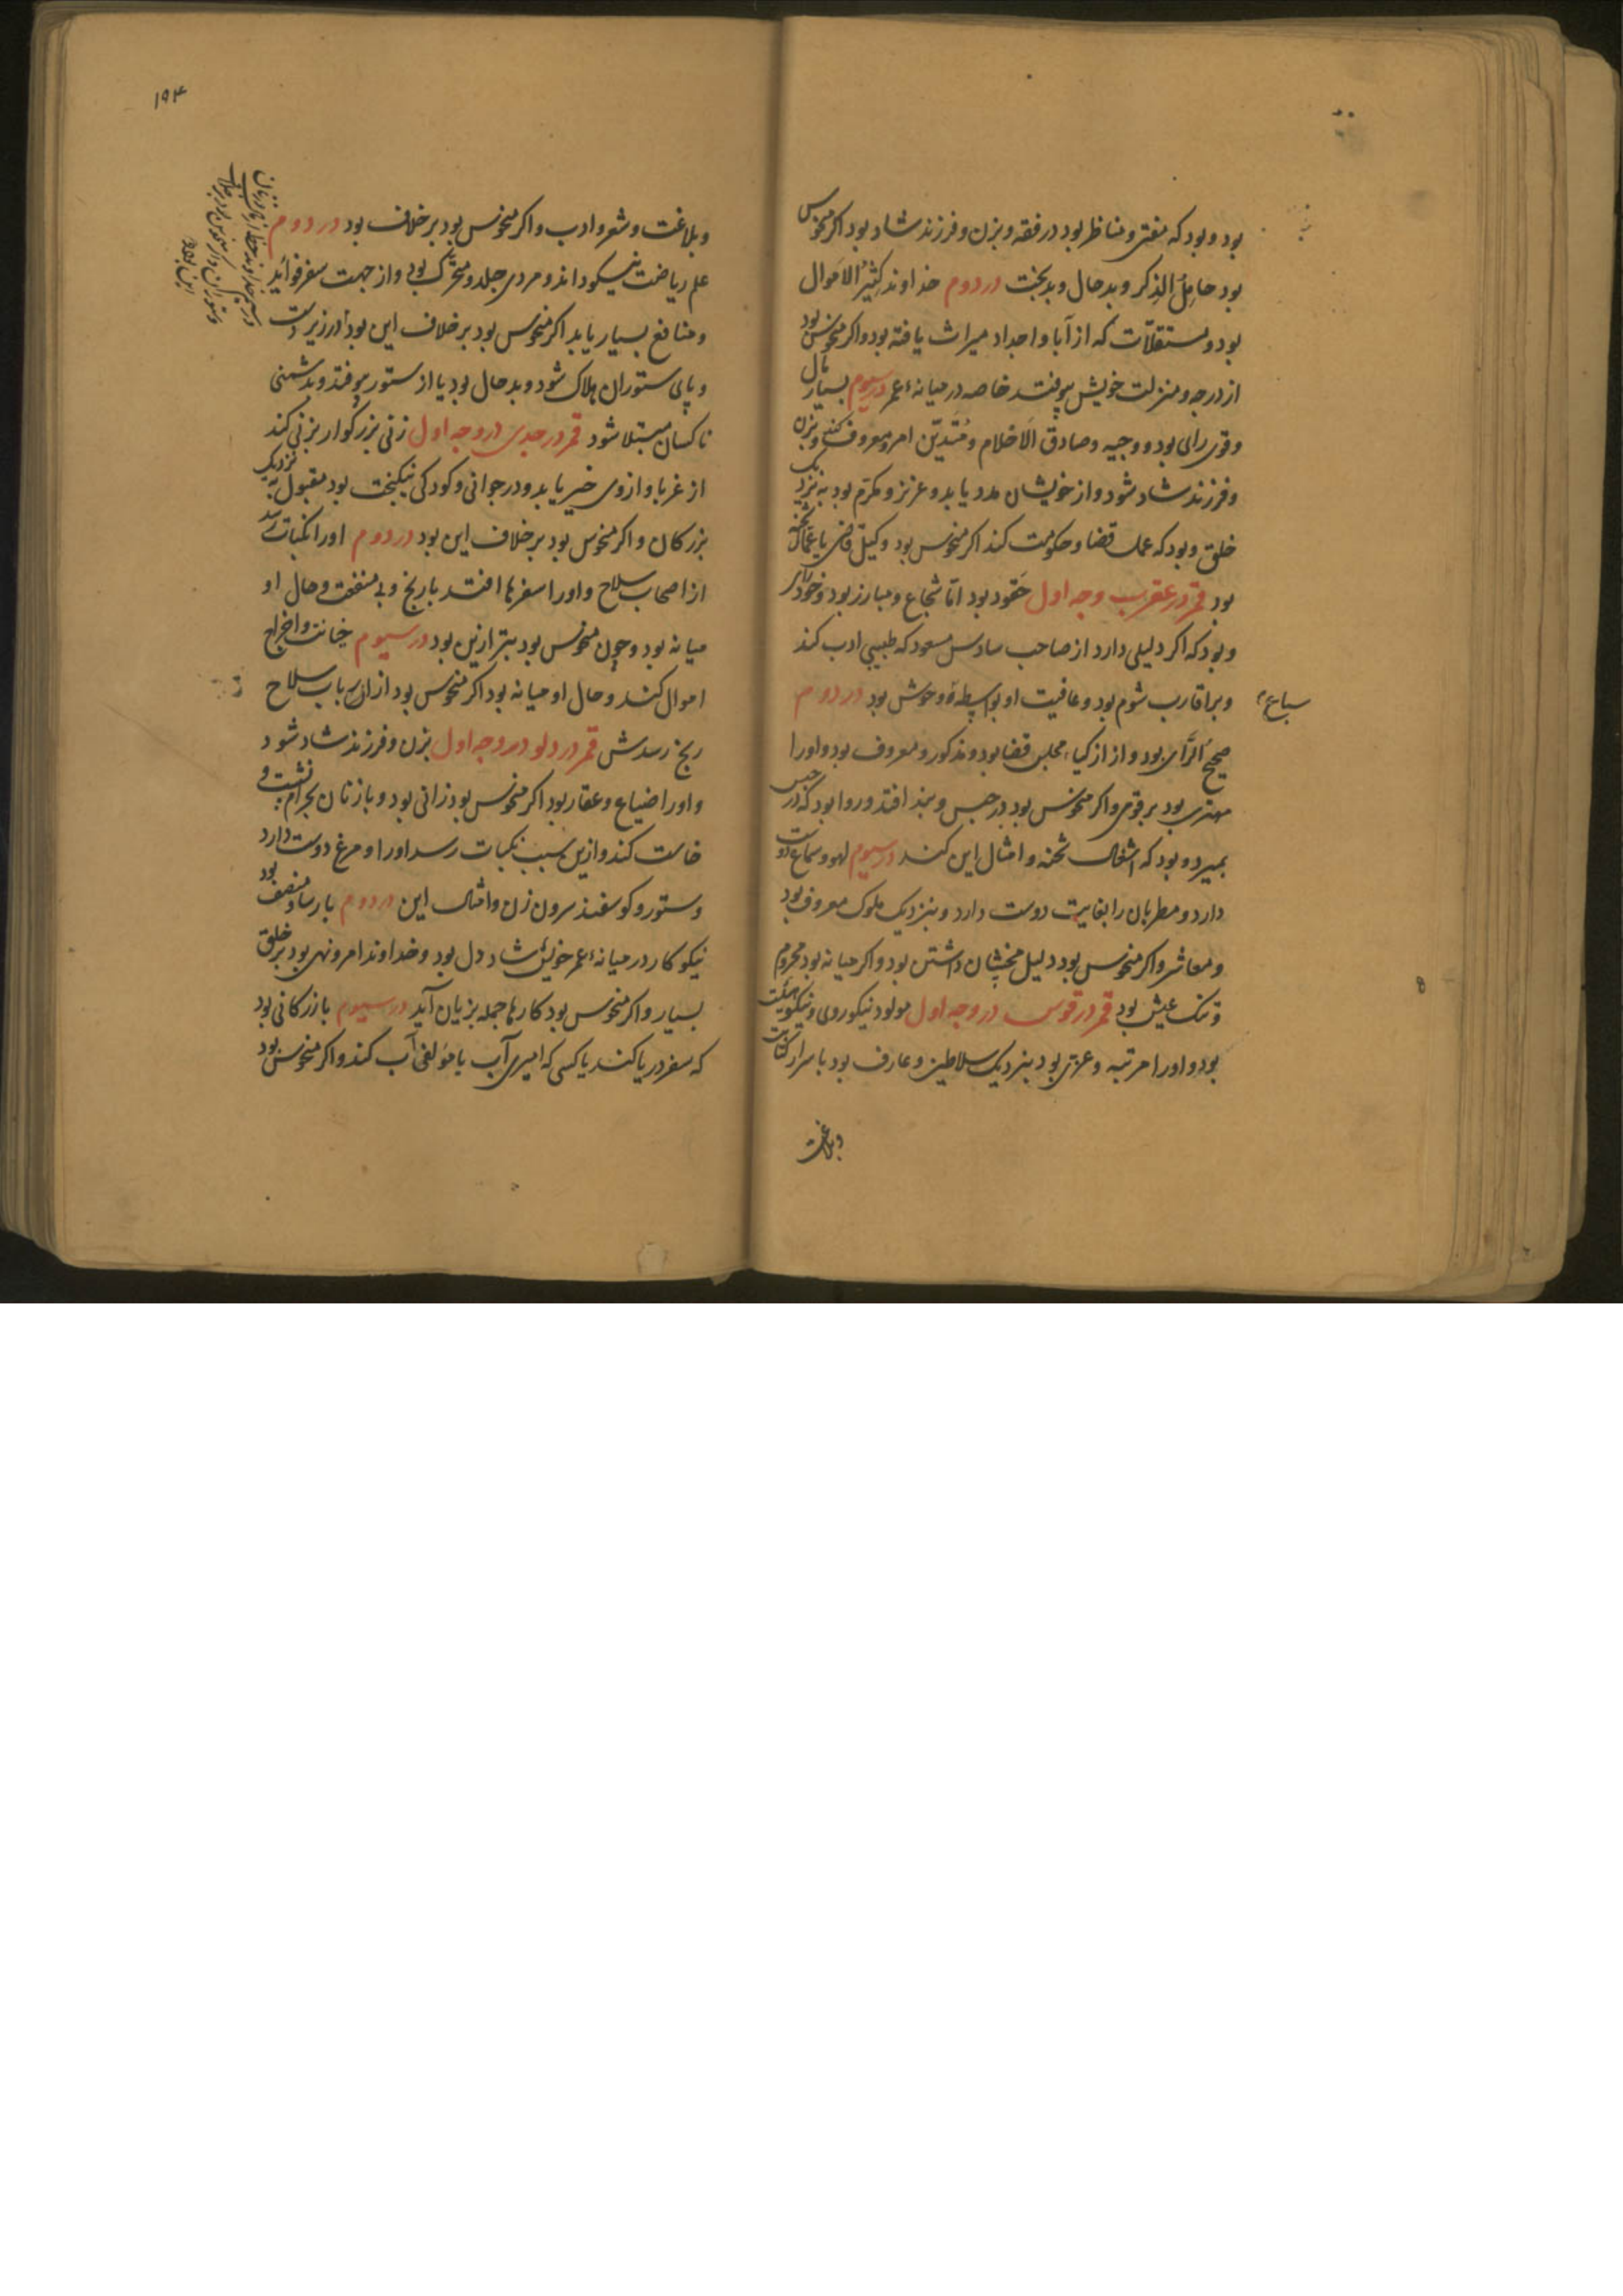 بود و بود که مفتی و مناظر بود در فقه و بزن و فرزند شاد بود اکر منحوس
بود خامل الذکر و بدحال و بدبخت در دوم خداوند کثیر الاموال
بود و مستقلات که از آبا و اجداد میراث یافته بود و اکر منحوس بود
از درجه و منزلت خویش بیوفتد خاصه در میانهٔ عمر در سیوم بسیار مال
و قوی رای بود و وجیه و صادق الاحلام و متدین امر معروف کند و بزن
و فرزند شاد شود و از خویشان مدد یابد و عزیز و مکرم بود به نزدیک
خلق و بود که عمل قضا و حکومت کند اکر منحوس بود وکیل قاضی یا عمال شحنه
بود قمر در عقرب وجه اول حقود بود اما شجاع و مبارز بود و خودرای
و بود که اکر دلیلی دارد از صاحب سادس مسعود که طبیبی ادب کند
و بر اقارب شوم بود و عافیت او بواسطهٔ وحوش بود در دوم
سباع
صحیح الرای بود و از ازکیاء مجلس قضا بود و مذکور و معروف بود و او را
مهتری بود بر قومی و اکر منحوس بود در حبس و بند افتد و روا بود که در حبس
بمیرد و بود که اشغال شحنه و امثال این کند در سیوم لهو و سماع دوست
دارد و مطربان را بغایت دوست دارد و بنزدیک ملوک معروف بود
و معاشر و اکر منحوس بود دلیل مخنثان داشتن بود و اکر میانه بود محروم
و تنک عیش بود قمر در قوس در وجه اول مولود نیکوروی و نیکو هیئت
بود و او را مرتبه و عزتی بود بنزدیک سلاطین و عارف بود باسرار کتابت
و بلاغت
۱۹۴
و بلاغت و شعر و ادب و اکر منحوس بود برخلاف بود در دوم
علم ریاضت نیکو داند و مردی جلد و متحرک بود و از جهت سفر فواید
و منافع بسیار یابد اکر منحوس بود برخلاف این بود در زیر دست
و پای ستوران هلاک شود و بدحال بود یا از ستور بیوفتد و بدشمنی
ناکسان مبتلا شود قمر در جدی در وجه اول زنی بزرکوار بزنی کند
از غربا و ازوی خیر یابد و در جوانی و کودکی نیکبخت بود مقبول به نزدیک
بزرکان و اکر منحوس بود برخلاف این بود در دوم او را نکبات رسد
از اصحاب سلاح و او را سفرها افتد با رنج و بی منفعت و حال او
میانه بود و چون منحوس بود بتر ازین بود در سیوم خیانت و اخراج
اموال کند و حال او میانه بود اکر منحوس بود از ارباب سلاح
رنج رسدش قمر در دلو در وجه اول بزن و فرزند شاد شود
و او را ضیاع و عقار بود اکر منحوس بود زانی بود و با زنان بحرام نشست و
خاست کند و ازین سبب نکبات رسد او را و مرغ دوست دارد
و ستور و کوسفند سرون زن و امثال این در دوم پارسا و منصف بود
نیکوکار در میانهٔ عمر خویش شاد دل بود و خداوند امر و نهی بود بر خلق
بسیار و اکر منحوس بود کارها جمله بزیان آید در سیوم بازرکانی بود
که سفر دریا کند یا کسی که امیری آب یا مؤلفی آب کند و اکر منحوس بود